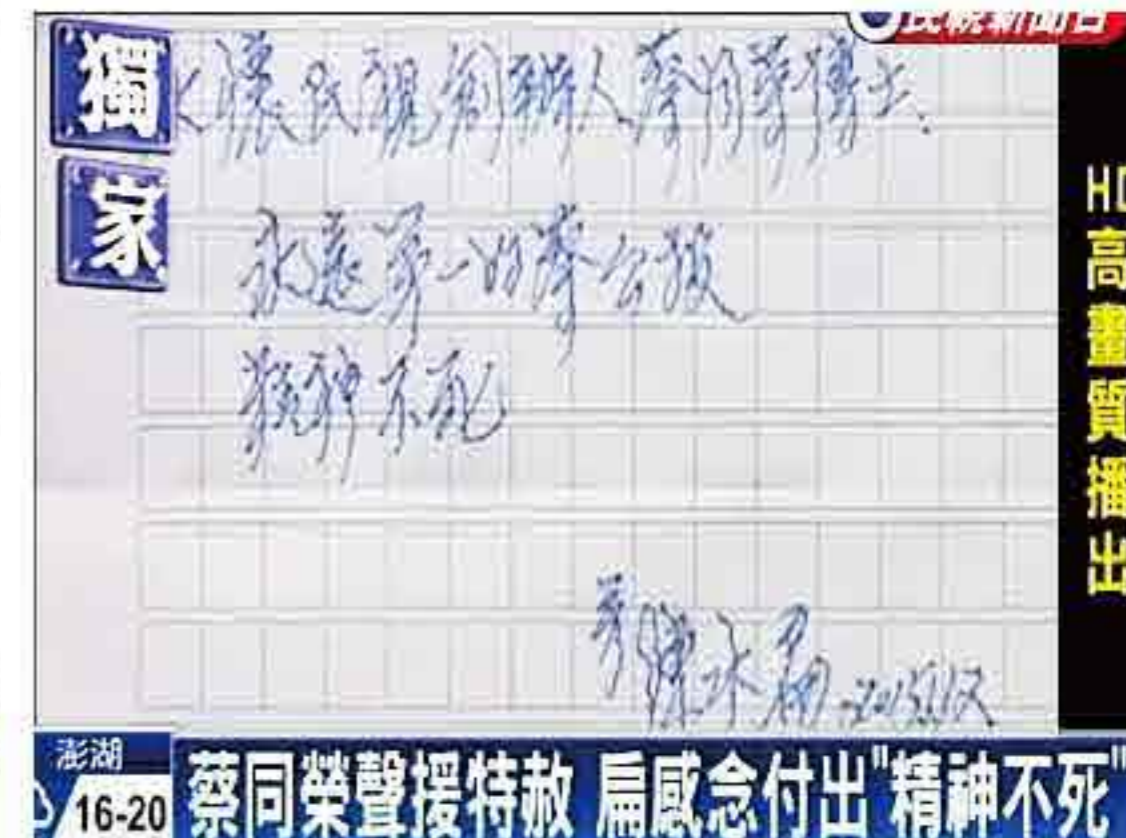 民視新聞台
獨家
永懷民視創辦人蔡同榮博士
永遠第一的蔡公投
精神不死
弟陳水扁
HD高畫質播出
澎湖
16-20
蔡同榮聲援特赦 扁感念付出"精神不死"